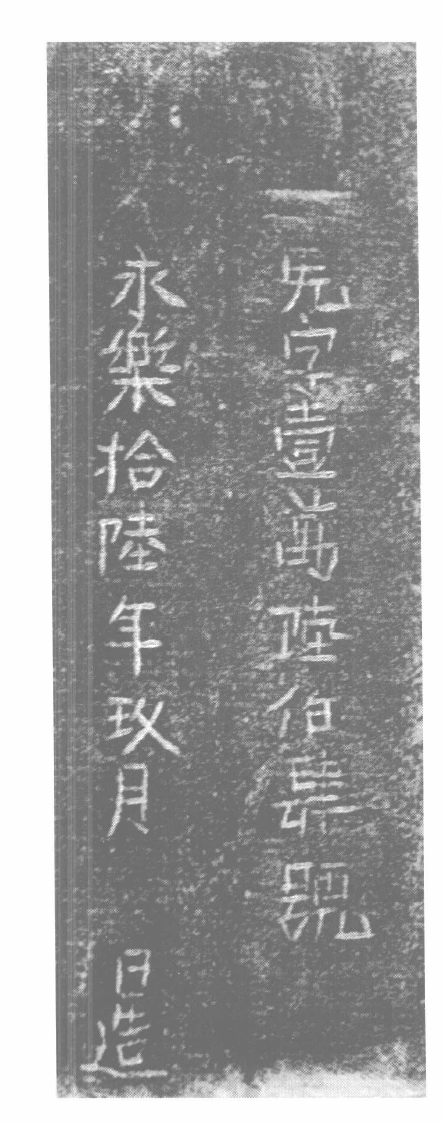 字壹萬陸伯號
永樂拾陸年玖月 日造